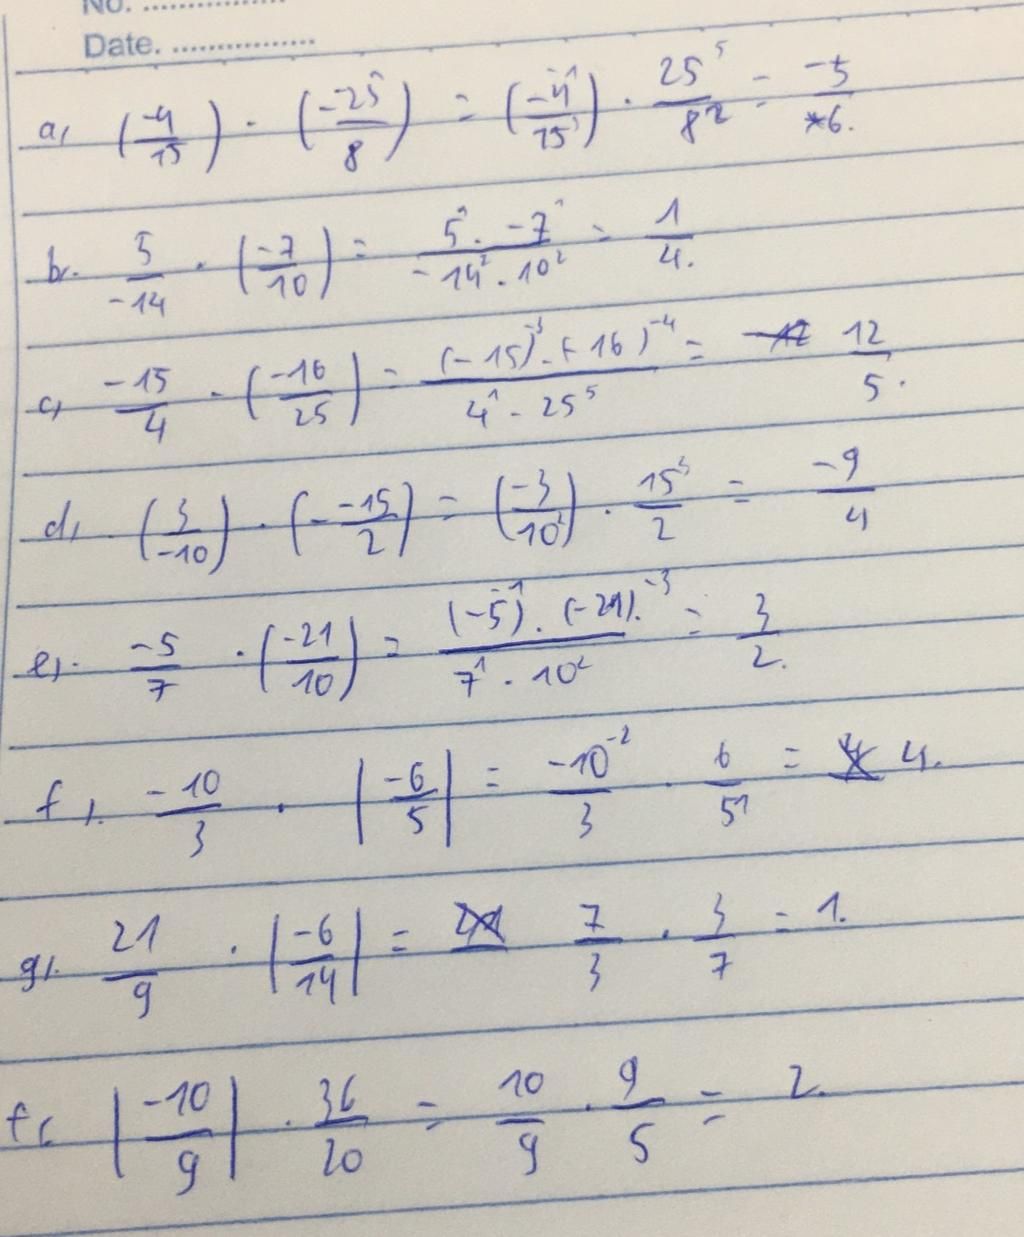 No. ................
Date. ................
a, (-4/15) . (--25/8) = (-4^-1/15^3) . 25^5/8^2 = -5/6.
b. 5/-14 . (-7/10) = 5^1 . -7^1/-14^2 . 10^2 = 1/4.
c, -15/4 . (-16/25) = (-15)^-3 . (-16)^-4/4^1 . 25^5 = 12/5.
d, (3/-10) . (--15/2) = (-3/10^2) . 15^3/2 = -9/4
e, -5/7 . (-21/10) = (-5)^-1 . (-21)^-3/7^1 . 10^2 = 3/2.
f, -10/3 . |-6/5| = -10^-2/3 . 6/5^1 = 4.
g, 21/9 . |-6/14| = 7/3 . 3/7 = 1.
f, |-10/9| . 36/20 = 10/9 . 9/5 = 2.